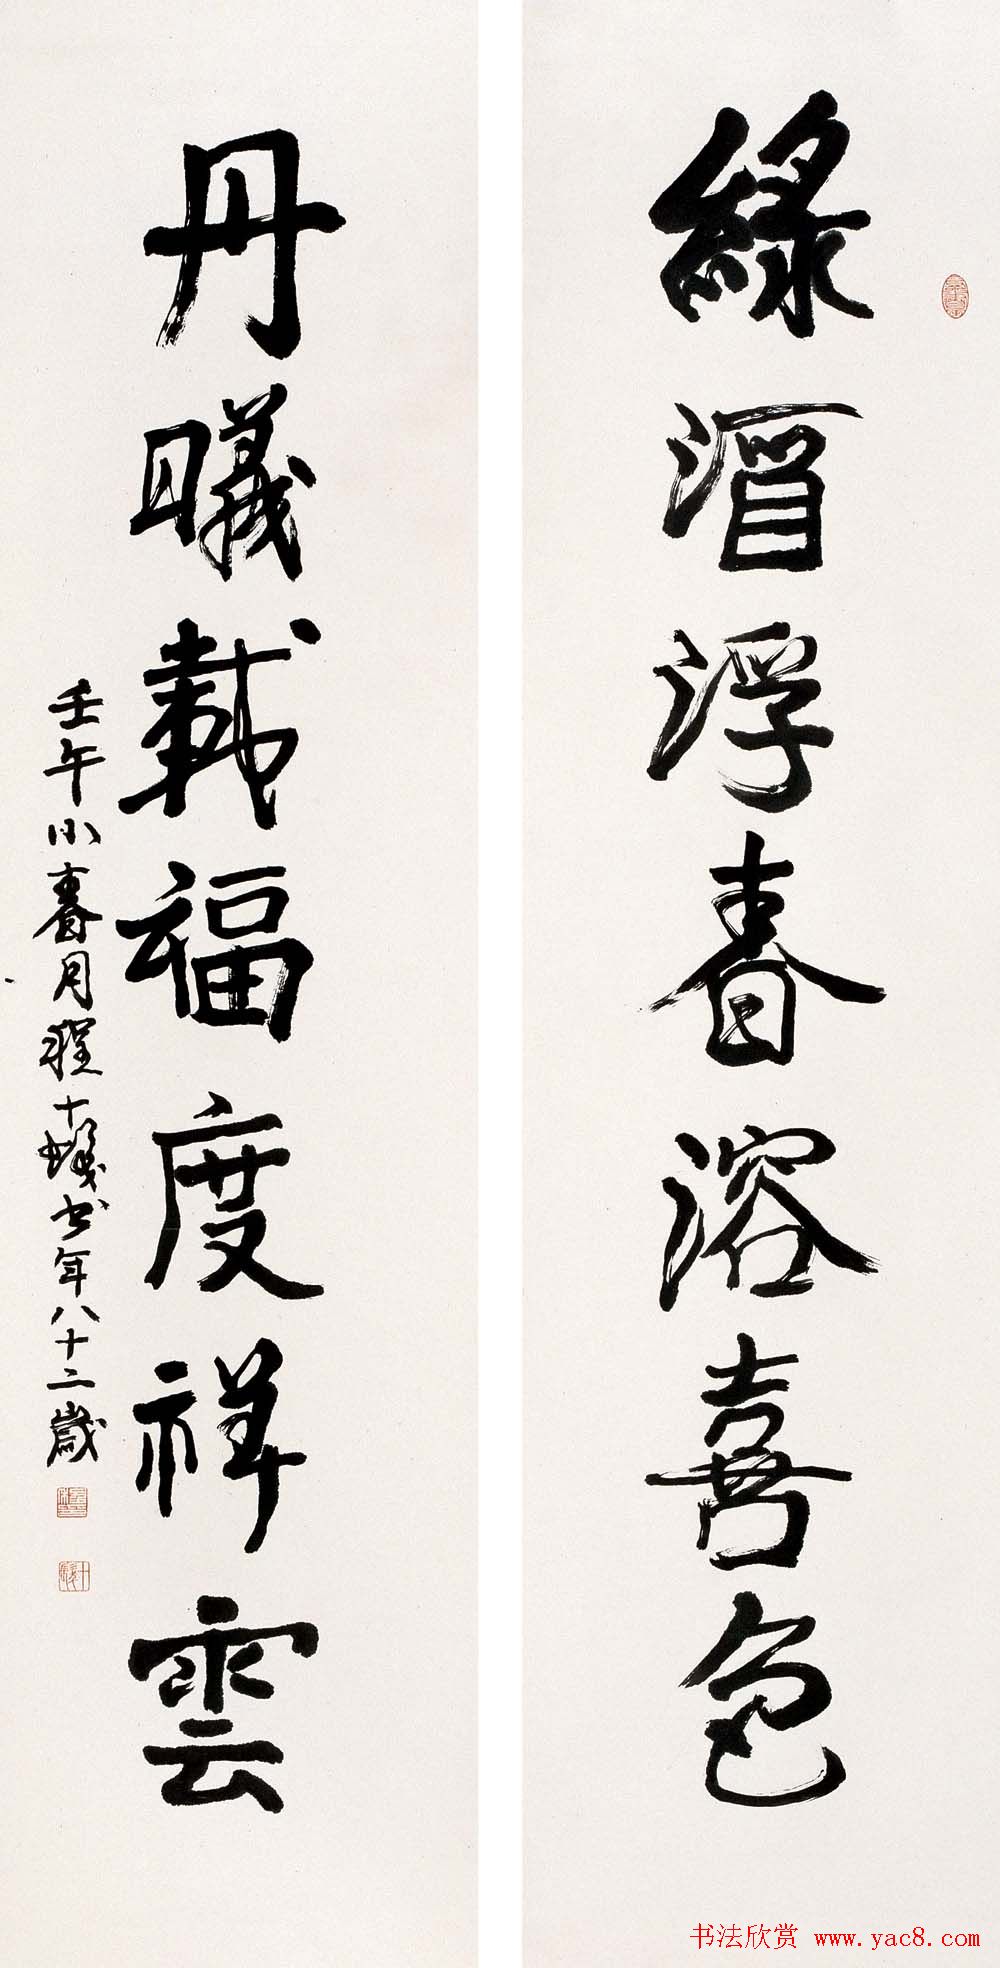 綠酒浮春溶喜色
丹曦載福度祥雲
壬午小春月程十髮書年八十二歲
书法欣赏 www.yac8.com